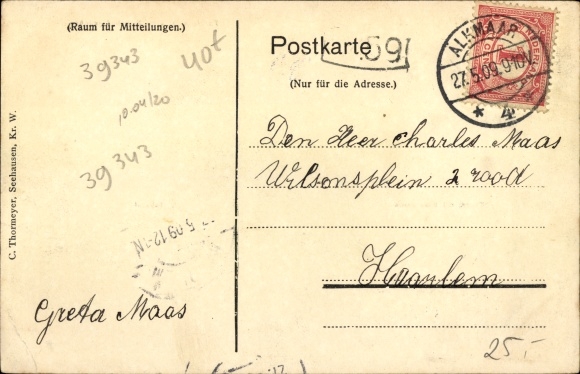 (Raum für Mitteilungen.)
39343
40t
10.04/20
39343
C. Thormeyer, Seehausen, Kr. W.
5.09.12-1N
Greta Maas
Postkarte
591
(Nur für die Adresse.)
ALKMAAR
27.5.09.9-10V
4
Den Heer Charles Maas
Wilsonsplein 2 rood
Haarlem
25.-